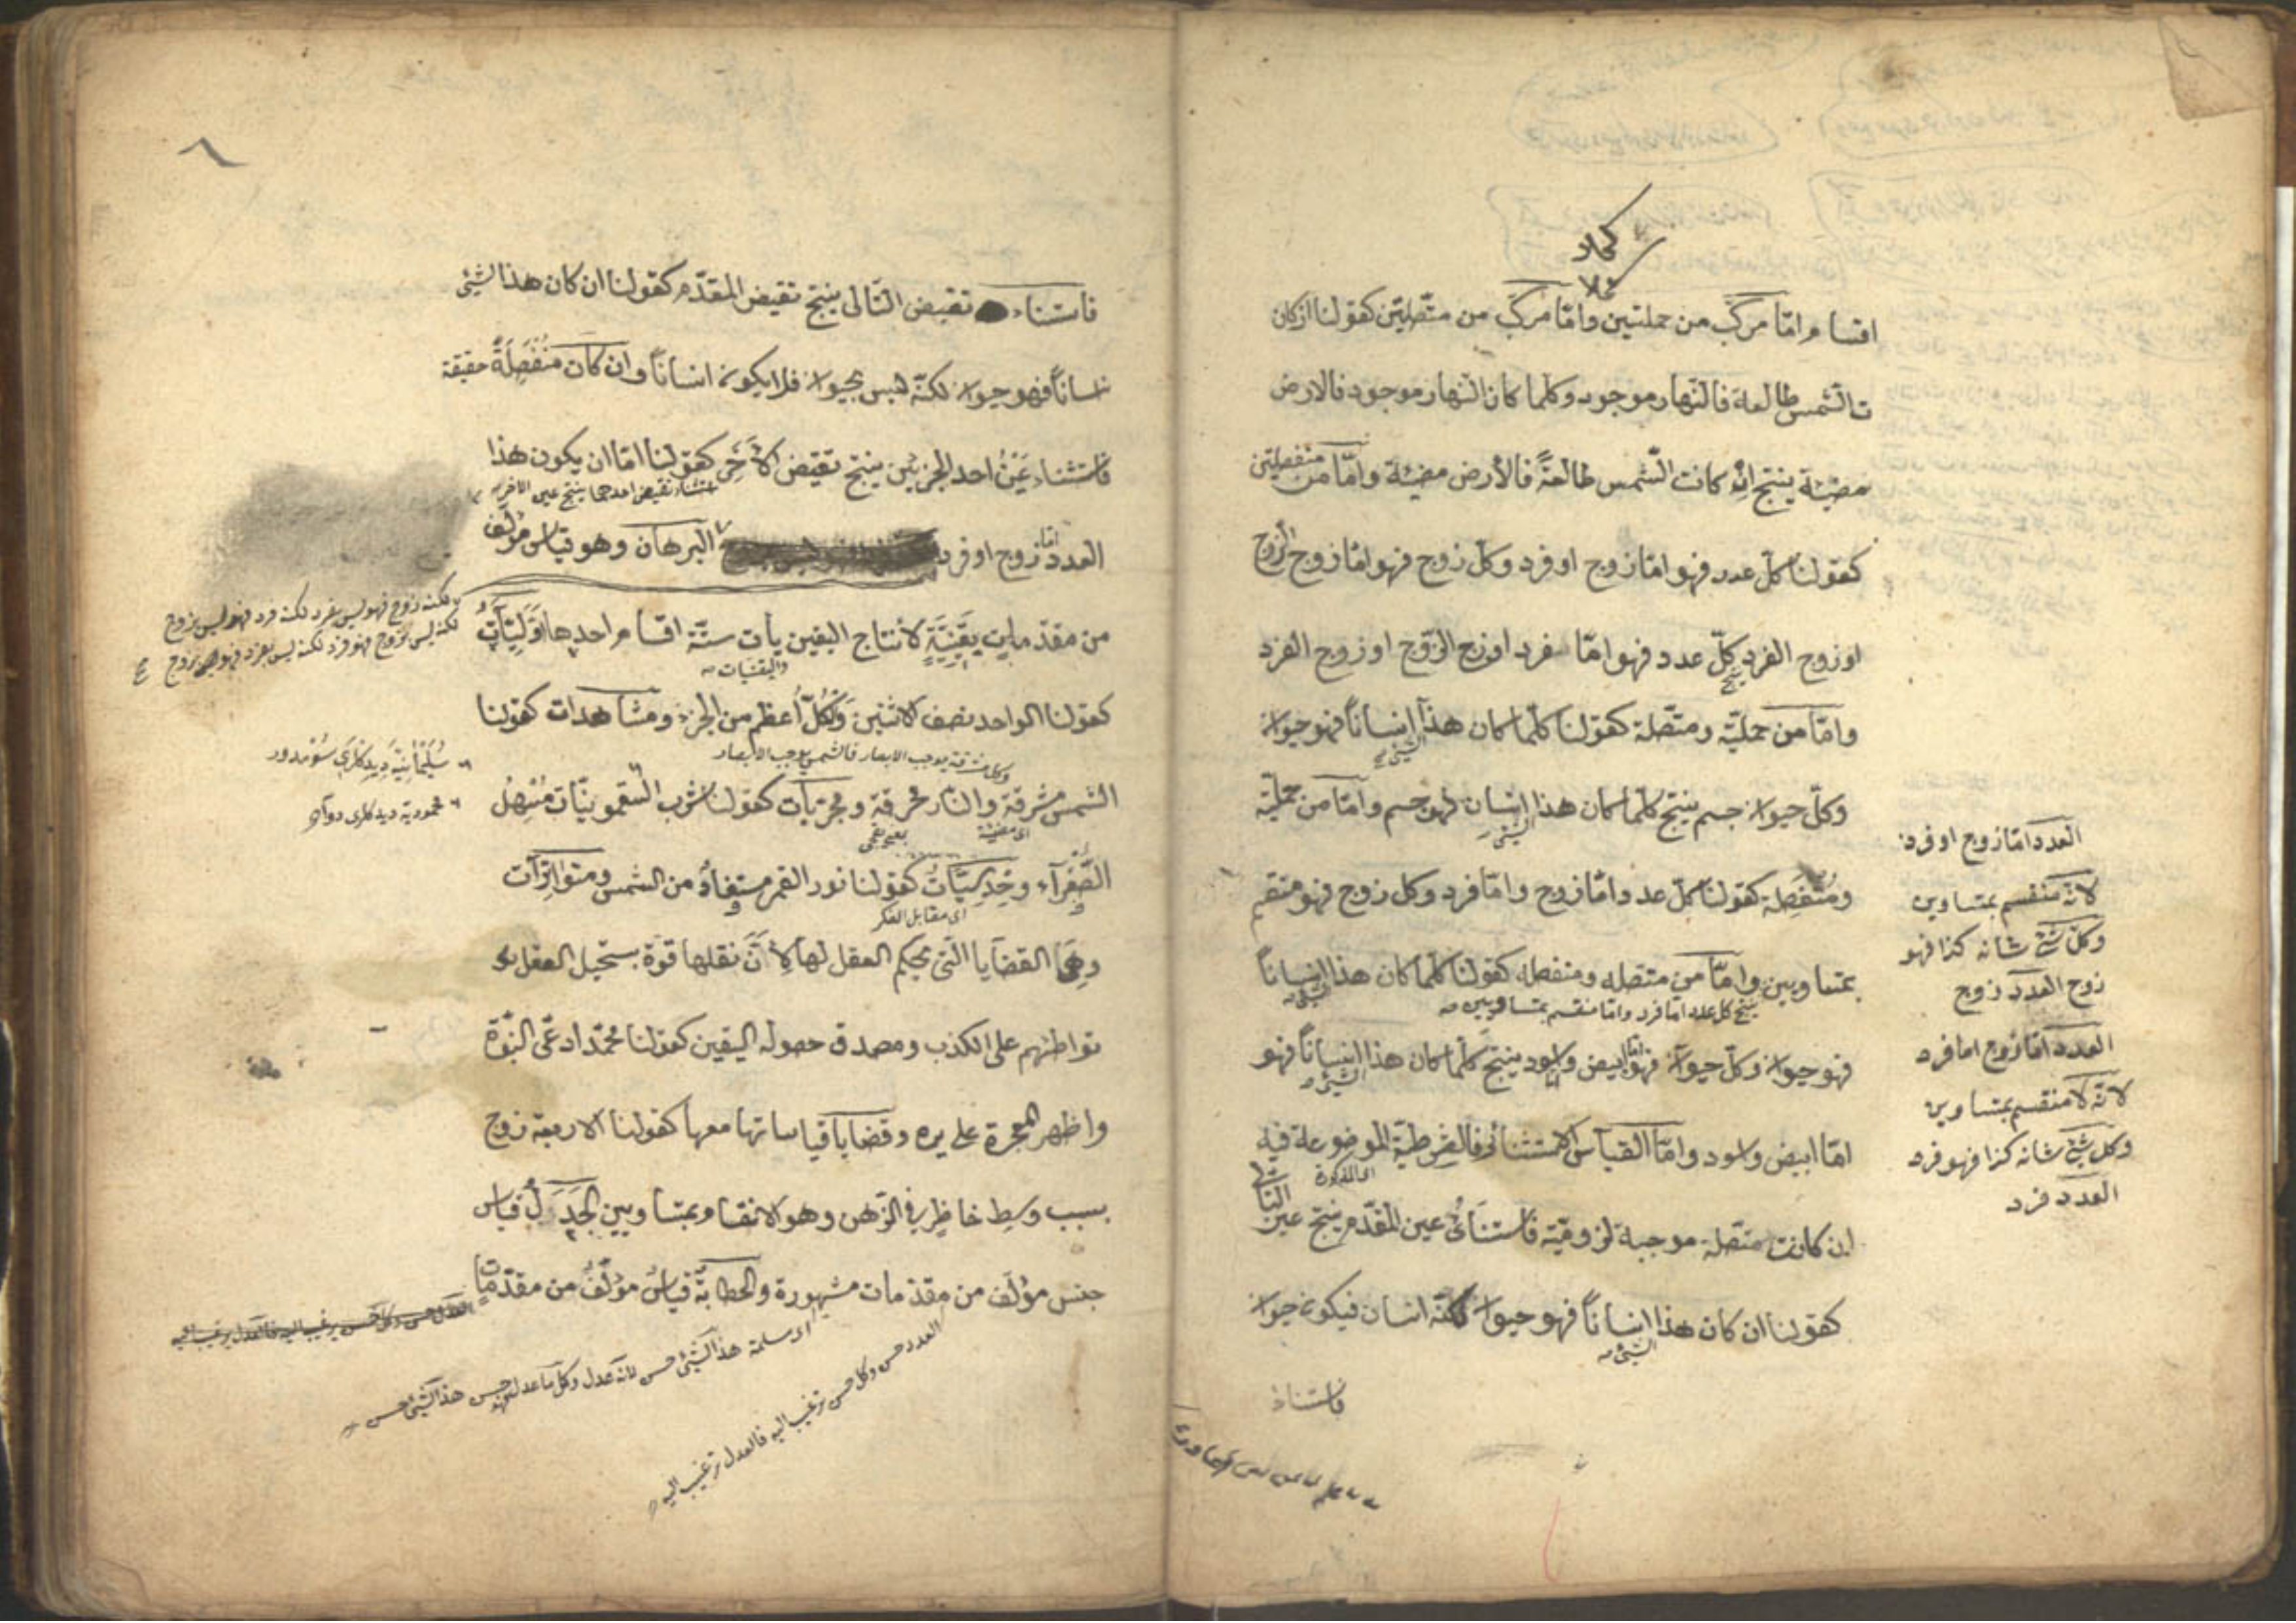 اقسام امّا مركّب من حمليتين وامّا مركّب من متّصلتين كقولنا ان كان
ت الشّمس طالعة فالنّهار موجود وكلّما كان النّهار موجود فالارض
مضيئة ينتج ان كانت الشّمس طالعةً فالأرض مضيئة وامّا من منفصلتين
كقولنا كلّ عدد فهو امّا زوج او فرد وكلّ زوج فهو امّا زوج الزوج
او زوج الفرد ينتج كلّ عدد فهو امّا فرد او زوج الزّوج او زوج الفرد
وامّا من حمليّة ومتّصلة كقولنا كلّما كان هذا الشئ انساناً فهو حيوان
وكلّ حيوان جسم ينتج كلّما كان هذا الشئ انسان فهو جسم وامّا من حمليّة
ومُنْفَصِلة كقولنا كلّ عدد امّا زوج وامّا فرد وكل زوج فهو منقسم
بمتساويين وامّا من متّصله ومنفصله كقولنا كلّما كان هذا الشئ انساناً
ينتج كل عدد امّا فرد وامّا منقسم بمتساويين
فهو حيوان وكلّ حيوان فهو امّا ابيض واسود ينتج كلّما كان هذا الشئ انساناً فهو
امّا ابيض واسود وامّا القياس الاستثنائى فالشّرطيّة الموضوعة فيه
اى المذكورة
ان كانت متّصلة موجبة لزوميّة فاستثناءُ عين المقدّم ينتج عين التالى
كقولنا ان كان هذا الشئ انساناً فهو حيوان لكنّه انسان فيكون حيوان
فاستثناء
العدد امّا زوج او فرد
لانّه منقسم بمتساوين
وكلّ شئ شانه كذا فهو
زوج العدد زوج
العدد امّا زوج اما فرد
لانّه لا منقسم بمتساوين
وكل شئ شانه كذا فهو فرد
العدد فرد
٨
فاستثناء نقيض التّالى ينتج نقيض المقدّم كقولنا ان كان هذا الشئ
نساناً فهو حيوان لكنّه ليس بحيوان فلا يكون انساناً وان كان مُنْفَصِلَةً حقيقة
فاستثناء عَيْنُ احد الجزئين ينتج نقيض الآخَرِ كقولنا امّا ان يكون هذا
استثناء نقيض احدهما ينتج عين الاخر
العدد امّا زوج او فرد البرهان وهو قياس مؤلّف
من مقدّمات يقينيّةٍ لانتاج اليقين يأت ستّة اقسام احدها اوّليّات
واليقنيات
كقولنا الواحد نصف الاثنين وَالكُلُّ أعظم من الجزء ومشاهدات كقولنا
وكل مشرقة يوجب الابصار فالشمس يوجب الابصار
الشمس مشرقة والنّار محرقة ومجرّبات كقولنا شرب السّقمونيّات مُسْهِلُ
اى مضيئة
الصَّفْرآء وحَدسِيّاتٌ كقولنا نور القمر مستفادٌ من الشمس ومتواترآت
اى مقابل الفكر
وهى القضايا الّتى يحكم العقل لها لأنَّ نقلها قوّة يستحيل العقل
تواطئهم على الكذب ومصدق حصوله اليقين كقولنا محمّد ادعّى النبّوة
واظهر المعجزة على يده وقضايا قياساتها معها كقولنا الاربعة زوج
بسبب وسط حاظرٍ فى الذّهن وهو الانقسام بمتساويين الجَدَلُ قياس
جنس مؤلّف من مقدّمات مشهورة والخطابة قياسٌ مؤلّفٌ من مقدّمات
لكنّه زوج فهو ليس بفرد لكنه فرد فهو ليس بزوج
لكنه ليس بزوج فهو فرد لكنه ليس بفرد فهو زوج
محموديه ديدكلرى دوآ
هذا الشئ حسن لانه عدل وكل ما عدل فهو حسن هذا الشئ حسن
وكل حسن ترغيب اليه فالعدل ترغيب اليه